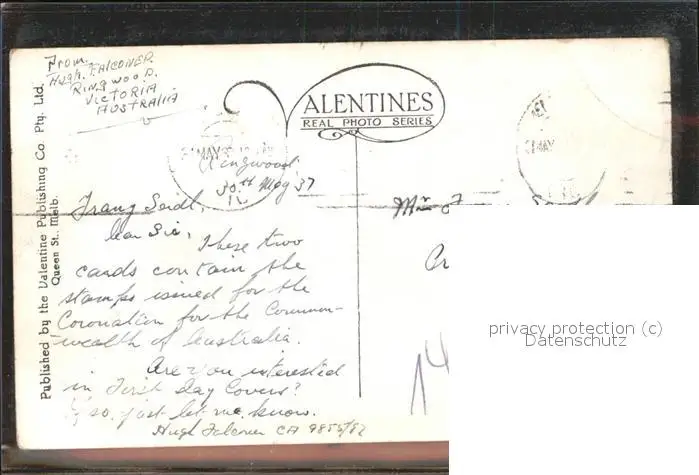 From
Hugh. FALCONER.
RINGWOOD.
VICTORIA
AUSTRALIA
VALENTINES
REAL PHOTO SERIES
Published by the Valentine Publishing Co. Pty. Ltd.
Queen St. Melb.
MAY
MAY
Ringwood
30th May '37
Franz Seidl,
Dear Sir,
These two
cards contain the
stamps issued for the
Coronation for the Common-
wealth of Australia.
Are you interested
in First Day Covers?
If so, just let me know.
Hugh Falconer CA 9855/87
privacy protection (c)
Datenschutz